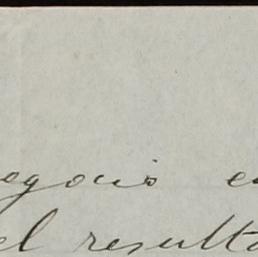 egocio e
el resulta